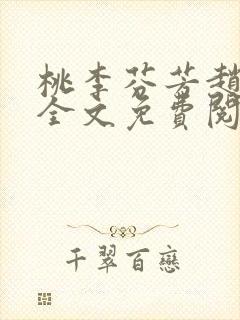 桃李芬芳趙
全文免費閱
千翠百戀